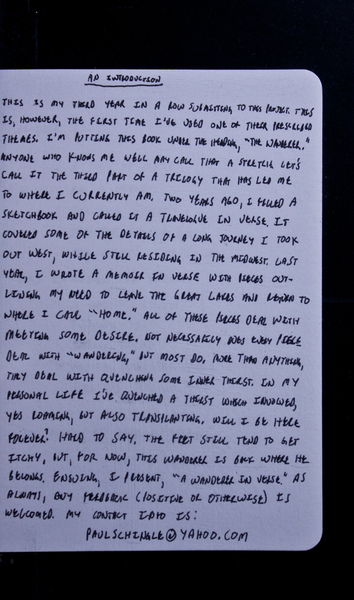 AN INTRODUCTION
THIS IS MY THIRD YEAR IN A ROW SUBMITTING TO THIS PROJECT. THIS
IS, HOWEVER, THE FIRST TIME I'VE USED ONE OF THEIR PRESCRIBED
THEMES. I'M PUTTING THIS BOOK UNDER THE HEADING, "THE WANDERER."
ANYONE WHO KNOWS ME WELL MAY CALL THAT A STRETCH. LET'S
CALL IT THE THIRD PART OF A TRILOGY THAT HAS LED ME
TO WHERE I CURRENTLY AM. TWO YEARS AGO, I FILLED A
SKETCHBOOK AND CALLED IT A TRAVELOGUE IN VERSE. IT
COVERED SOME OF THE DETAILS OF A LONG JOURNEY I TOOK
OUT WEST, WHILE STILL RESIDING IN THE MIDWEST. LAST
YEAR, I WROTE A MEMOIR IN VERSE WITH PIECES OUT-
LINING MY NEED TO LEAVE THE GREAT LAKES AND RETURN TO
WHERE I CALL "HOME." ALL OF THESE PIECES DEAL WITH
MEETING SOME DESIRE. NOT NECESSARILY DOES EVERY PIECE
DEAL WITH "WANDERING," BUT MOST DO. MORE THAN ANYTHING,
THEY DEAL WITH QUENCHING SOME INNER THIRST. IN MY
PERSONAL LIFE I'VE QUENCHED A THIRST WHICH INVOLVED,
YES ROAMING, BUT ALSO TRANSPLANTING. WILL I BE HERE
FOREVER? HARD TO SAY. THE FEET STILL TEND TO GET
ITCHY, BUT, FOR NOW, THIS WANDERER IS BACK WHERE HE
BELONGS. ENSUING, I PRESENT, "A WANDERER IN VERSE." AS
ALWAYS, ANY FEEDBACK (POSITIVE OR OTHERWISE) IS
WELCOMED. MY CONTACT INFO IS:
PAULSCHINGLE@YAHOO.COM